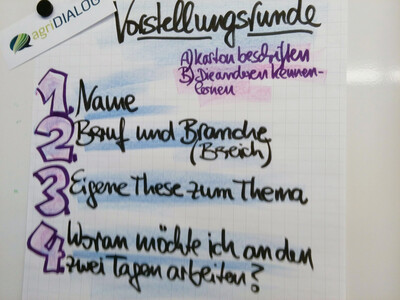 agriDIALOG
Vorstellungsrunde
A) Karton beschriften
B) Die anderen kennen-
lernen
1. Name
2. Beruf und Branche
(Bereich)
3 Eigene These zum Thema
4. Woran möchte ich an den
zwei Tagen arbeiten?